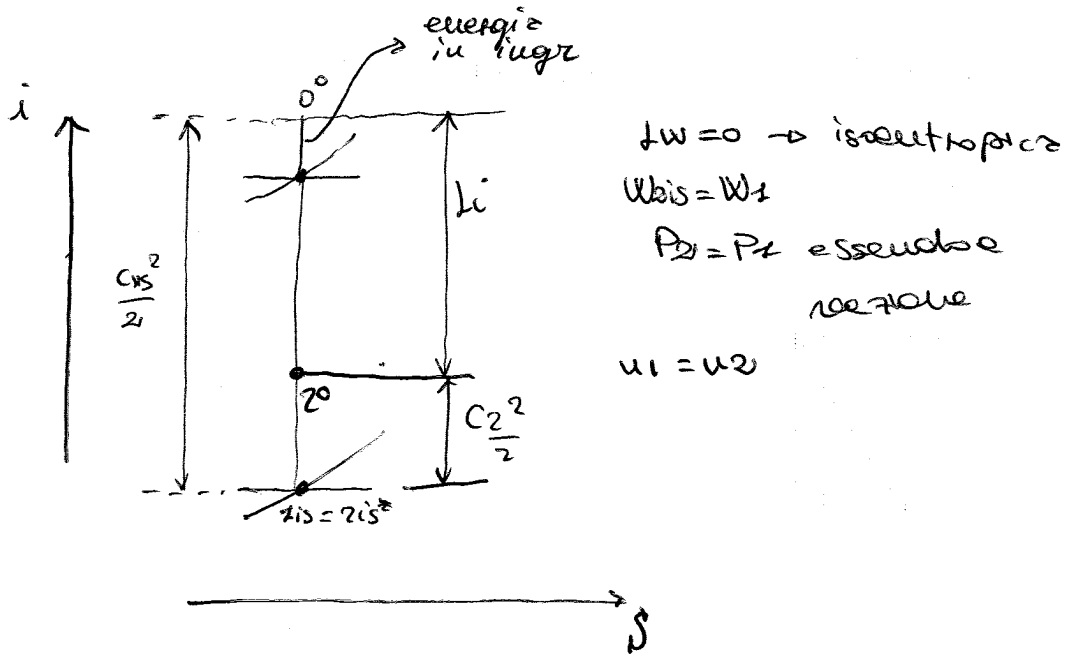 energia
in ingr
i
0°
Li
C1is²
2
2°
C2²
2
1is = 2is
S
Lw=0 → isoentropica
W2is = W1
P2 = P1 essendo a
reazione
u1 = u2